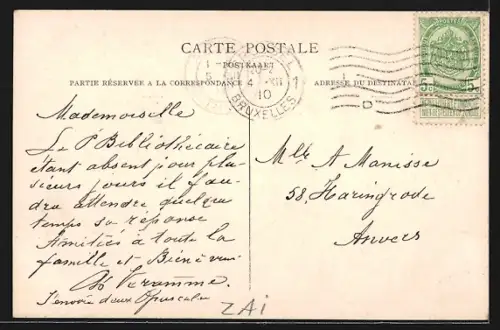 CARTE POSTALE
POSTKAART
PARTIE RÉSERVÉE A LA CORRESPONDANCE
ADRESSE DU DESTINATAIRE
BRUXELLES
1910
POSTES
5c 5c
Mademoiselle
Le P Bibliothécaire
étant absent pour plu-
sieurs jours il fau-
dra attendre quelque
temps sa réponse
Amitiés à toute la
famille et
J'envoie deux Opuscules
Mlle A Manisse
58, Haringrode
Anvers
ZAi